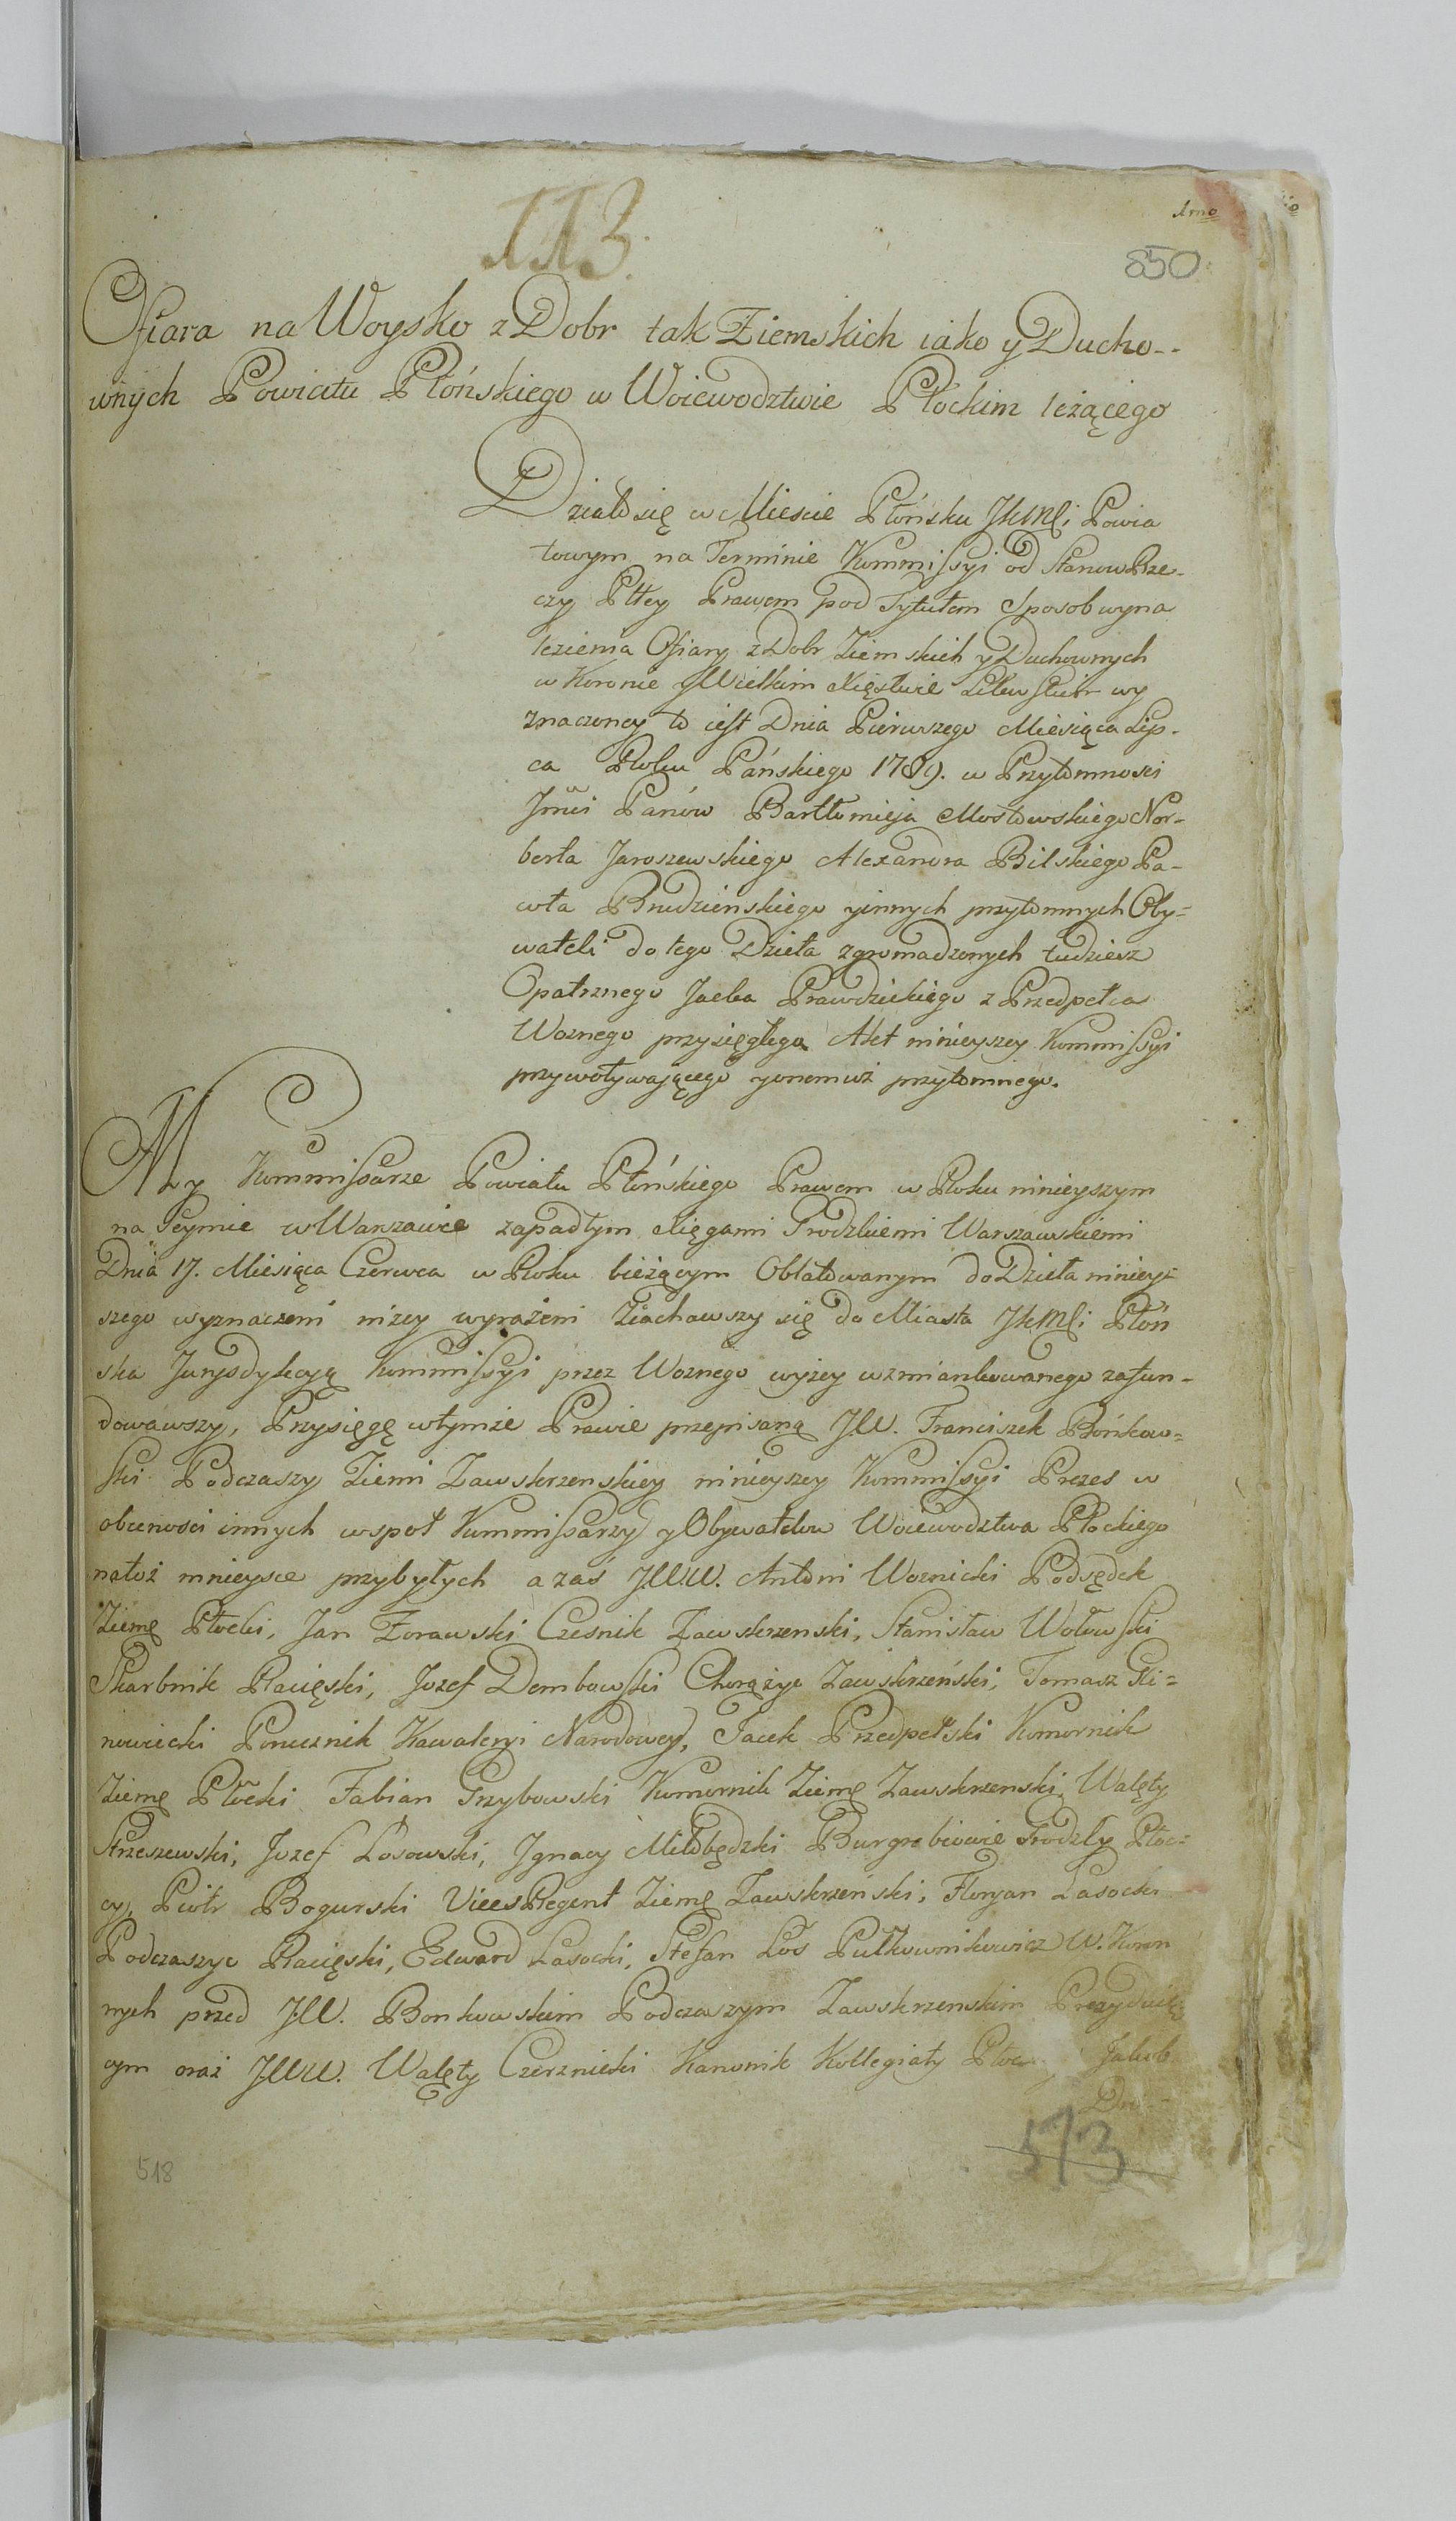 113.
850
Ofiara na Woysko z Dobr tak Ziemskich iako y Ducho--
wnych Powiatu Płońskiego w Woiewodztwie Płockim leżącego
Działo się w Miescie Płońsku JKMci Powia
towym na Terminie Kommissyi od Stanow Rze-
czy Pltey Prawem pod Tytułem Sposob wyna
lezienia Ofiary z Dobr Ziemskich y Duchownych
w Koronie y Wielkim Xięstwie Litewskim wy
znaczoney to iest Dnia Pierwszego Miesiąca Lip-
ca Roku Pańskiego 1789. w Przytomnosci
Jmci Panów Bartłomieja Mostowskiego Nor-
berta Jaroszewskiego Alexandra Bilskiego Pa-
wła Brudzienskiego y innych przytomnych Oby=
wateli do tego Dzieła zgromadzonych tudziesz
Opatrznego Jacka Prawdzickiego z Przedpełca
Woznego przysięgłego Akt ninieyszey Kommissyi
przywoływaiącego y onemuż przytomnego.
My Kommissarze Powiatu Płońskiego Prawem w Roku ninieyszym
na Seymie w Warszawie zapadłym Xięgami Grodzkiemi Warszawskiemi
Dnia 17. Miesiąca Czerwca w Roku bieżącym Oblatowanym do Dzieła niniey=
szego wyznaczeni niżey wyrażeni Ziachawszy się do Miasta JKMci Płoń
ska Jurysdykcyą Kommissyi przez Woznego wyżey wzmiankowanego zafun-
dowawszy, Przysięgę w tymże Prawie przepisaną JW. Franciszek Bońkow=
ski Podczaszy Ziemi Zawskrzenskiey ninieyszey Kommissyi Prezes w
obecnosci innych wspoł Kommissarzy y Obywatelow Woiewodztwa Płockiego
na toż mnieysce przybyłych a zaś JWW. Antoni Woznicki Podsędek
Ziemę Płocki, Jan Zorawski Czesnik Zawskrzenski, Stanisław Wołowski
Skarbnik Racięski, Jozef Dembowski Chorążyc Zawskrzeński, Tomasz Kli=
nowiecki Porucznik Kawaleryi Narodowey, Jacek Przedpełski Komornik
Ziemę Płocki Fabian Grzybowski Komornik Ziemę Zawskrzenski, Walęty
Strzeszewski, Jozef Łosowski, Jgnacy Miłobędzki Burgrabiowie Grodzky Płoc=
cy, Piotr Bogurski Vices Regent Ziemę Zawskrzeński, Floryan Lasocki
Podczaszyc Racięski, Edward Lasocki, Stefan Łoś Pułkownikowicz W. Koron
nych przed JW. Bonkowskim Podczaszym Zawskrzenskim Prezyduią
cym oraz JWW. Walęty Czerznicki Kanonik Kollegiaty Płoc Jakob
513
518